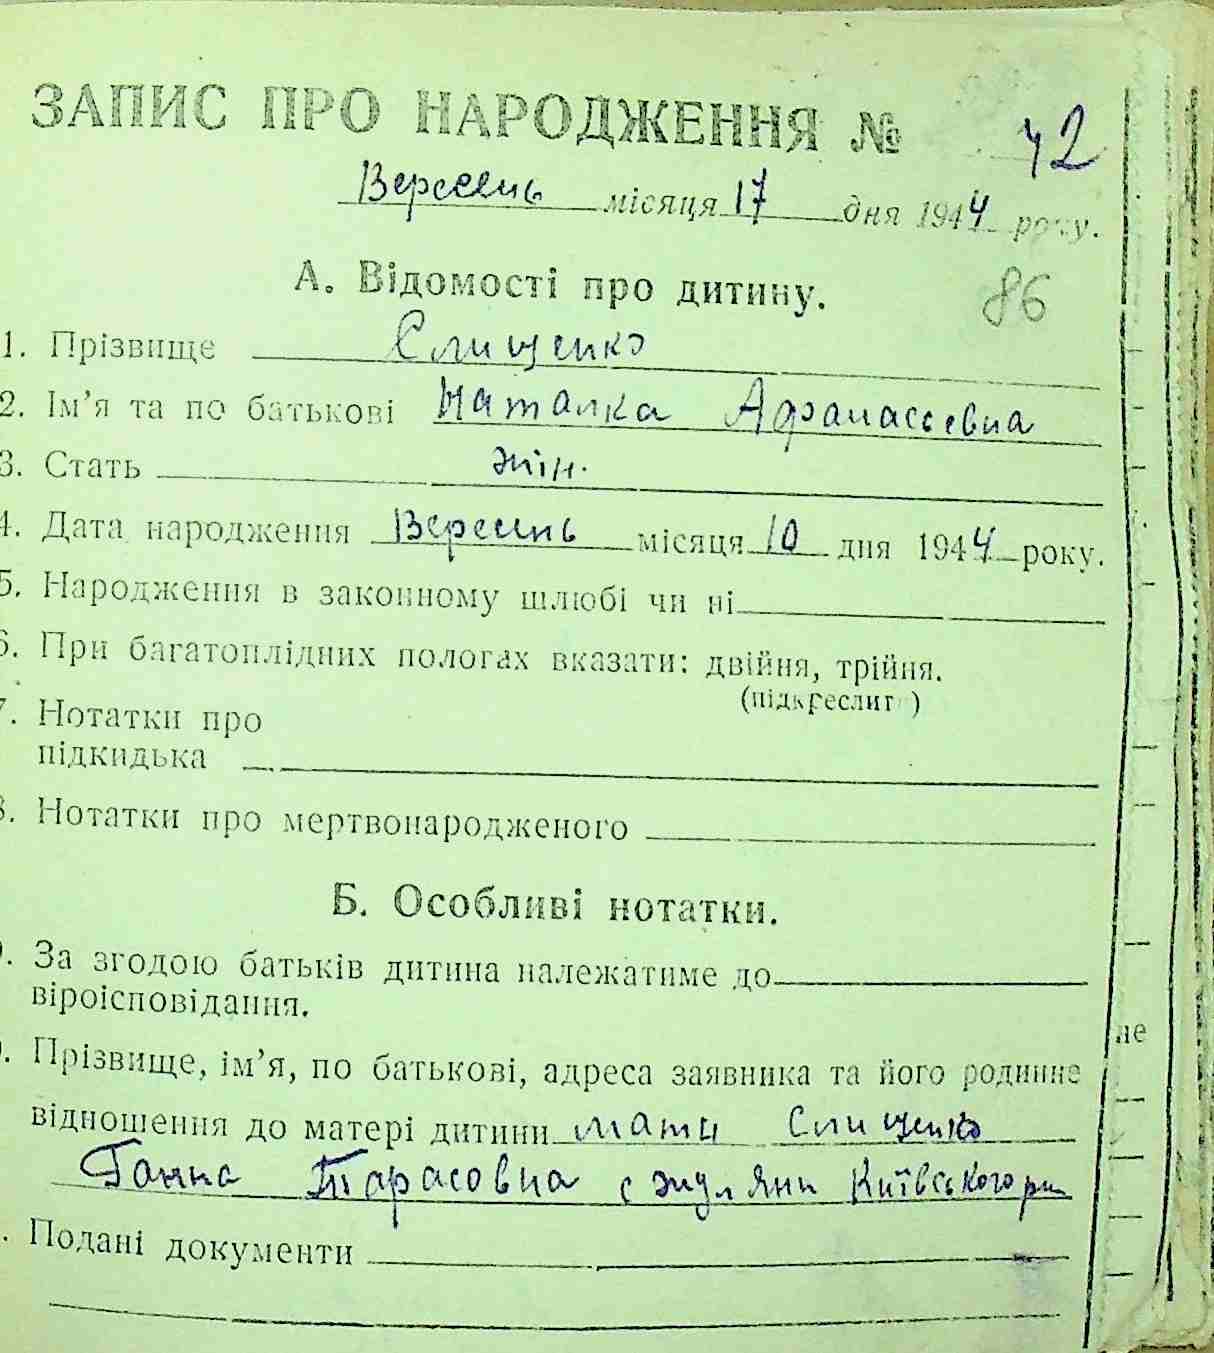 ЗАПИС ПРО НАРОДЖЕННЯ № 42
Вересень місяця 17 дня 1944 року.
А. Відомості про дитину.
86
1. Прізвище Слищенко
2. Ім’я та по батькові Наталка Афанасьевна
3. Стать жін.
4. Дата народження Вересень місяця 10 дня 1944 року.
5. Народження в законному шлюбі чи ні
6. При багатоплідних пологах вказати: двійня, трійня.
(підкреслит)
7. Нотатки про
підкидька
8. Нотатки про мертвонародженого
Б. Особливі нотатки.
. За згодою батьків дитина належатиме до
віроісповідання.
не
. Прізвище, ім’я, по батькові, адреса заявника та його родинне
відношення до матері дитини мати Слищенко
Ганна Тарасовна с Жуляни Київського рн
. Подані документи